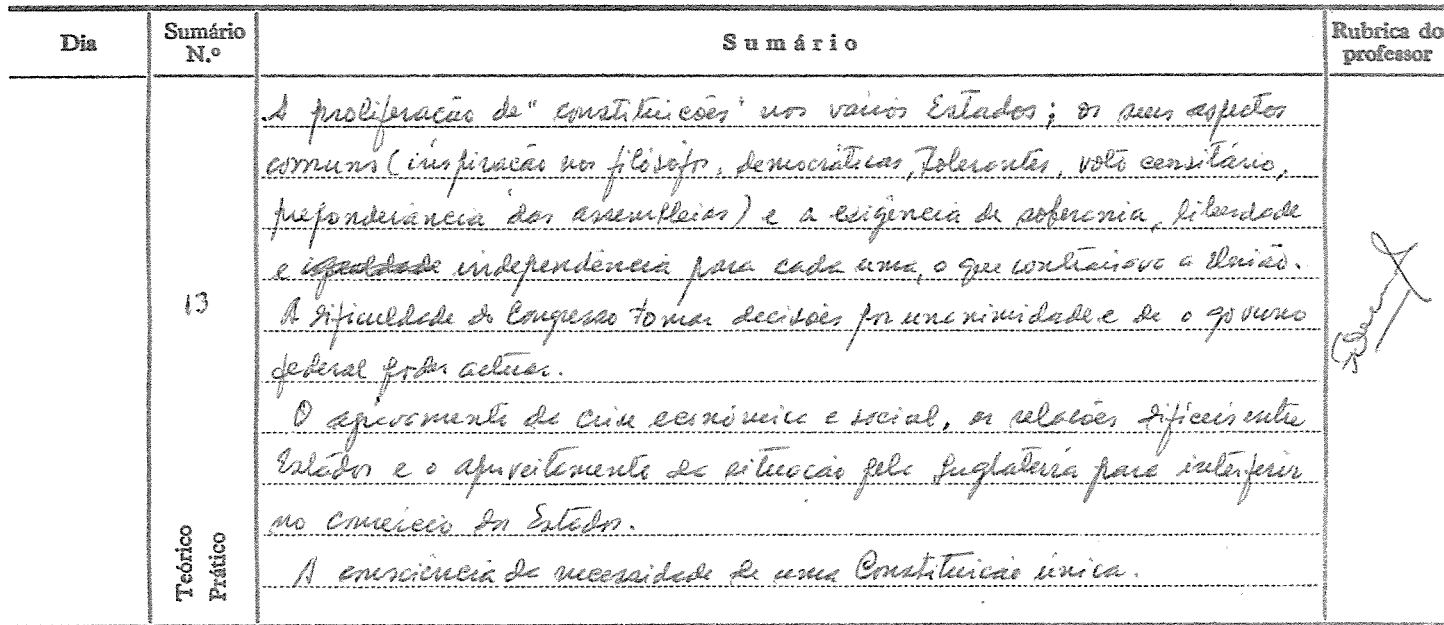 Dia
Sumário N.º
Sumário
Rubrica do professor
A proliferação de "constituições" nos vários Estados; os seus aspectos
comuns (inspiração nos filósofos, democráticas, tolerantes, voto censitário,
preponderância das assembleias) e a exigência de soberania, liberdade
e igualdade independência para cada uma, o que contrariava a União.
13
A dificuldade do Congresso tomar decisões por unanimidade e de o governo
federal poder actuar.
O agravamento da crise económica e social, as relações difíceis entre
Estados e o aproveitamento da situação pela Inglaterra para interferir
no comércio dos Estados.
A consciência da necessidade de uma Constituição única.
Teórico
Prático